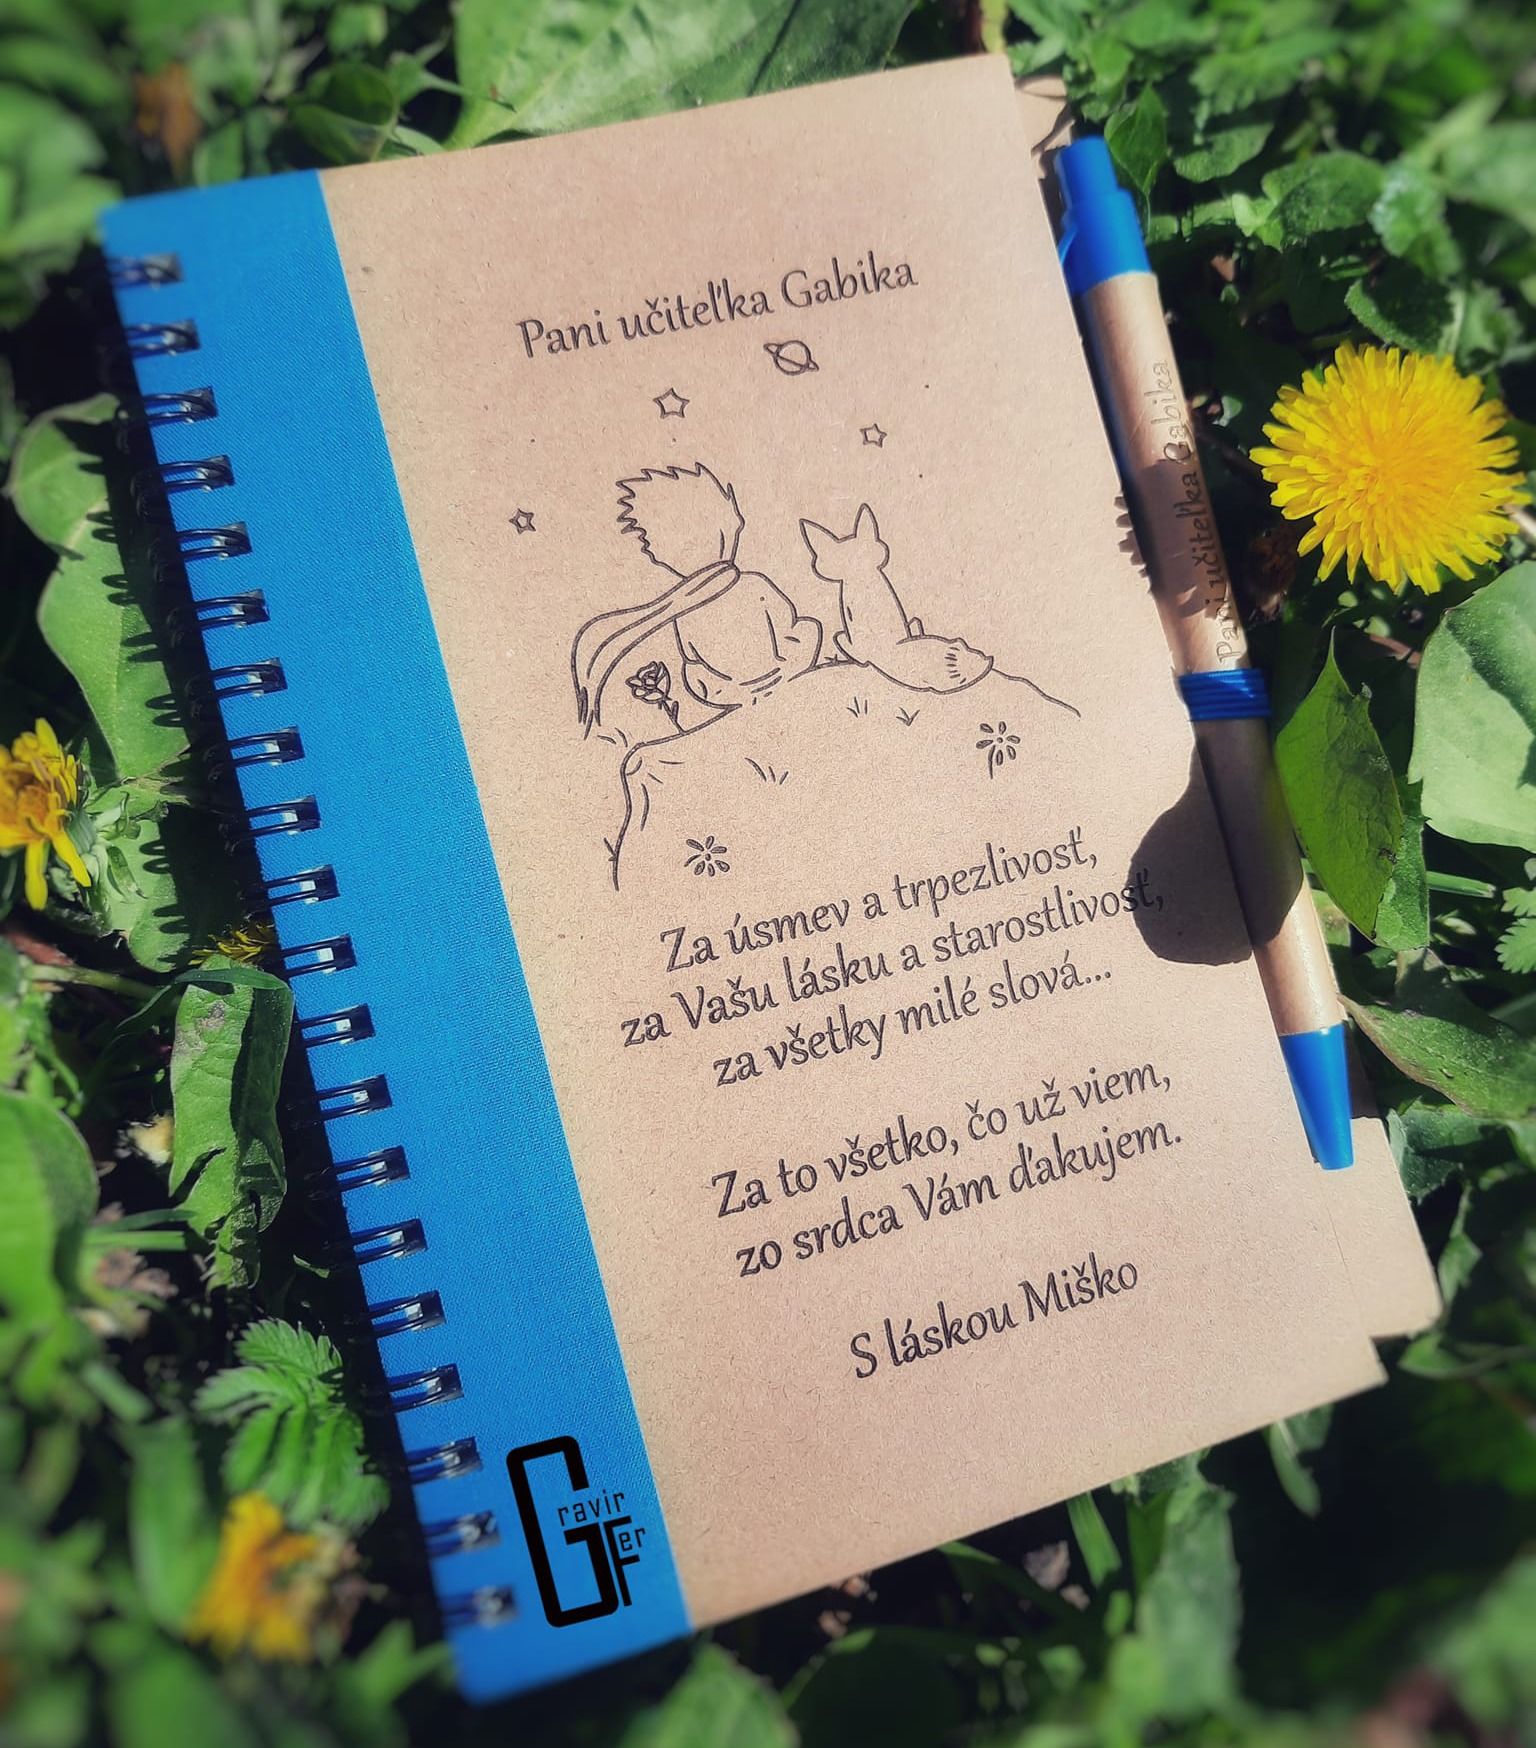 Pani učiteľka Gabika
Za úsmev a trpezlivosť,
za Vašu lásku a starostlivosť,
za všetky milé slová...
Za to všetko, čo už viem,
zo srdca Vám ďakujem.
S láskou Miško
Pani učiteľka Gabika
Gravir
Fer